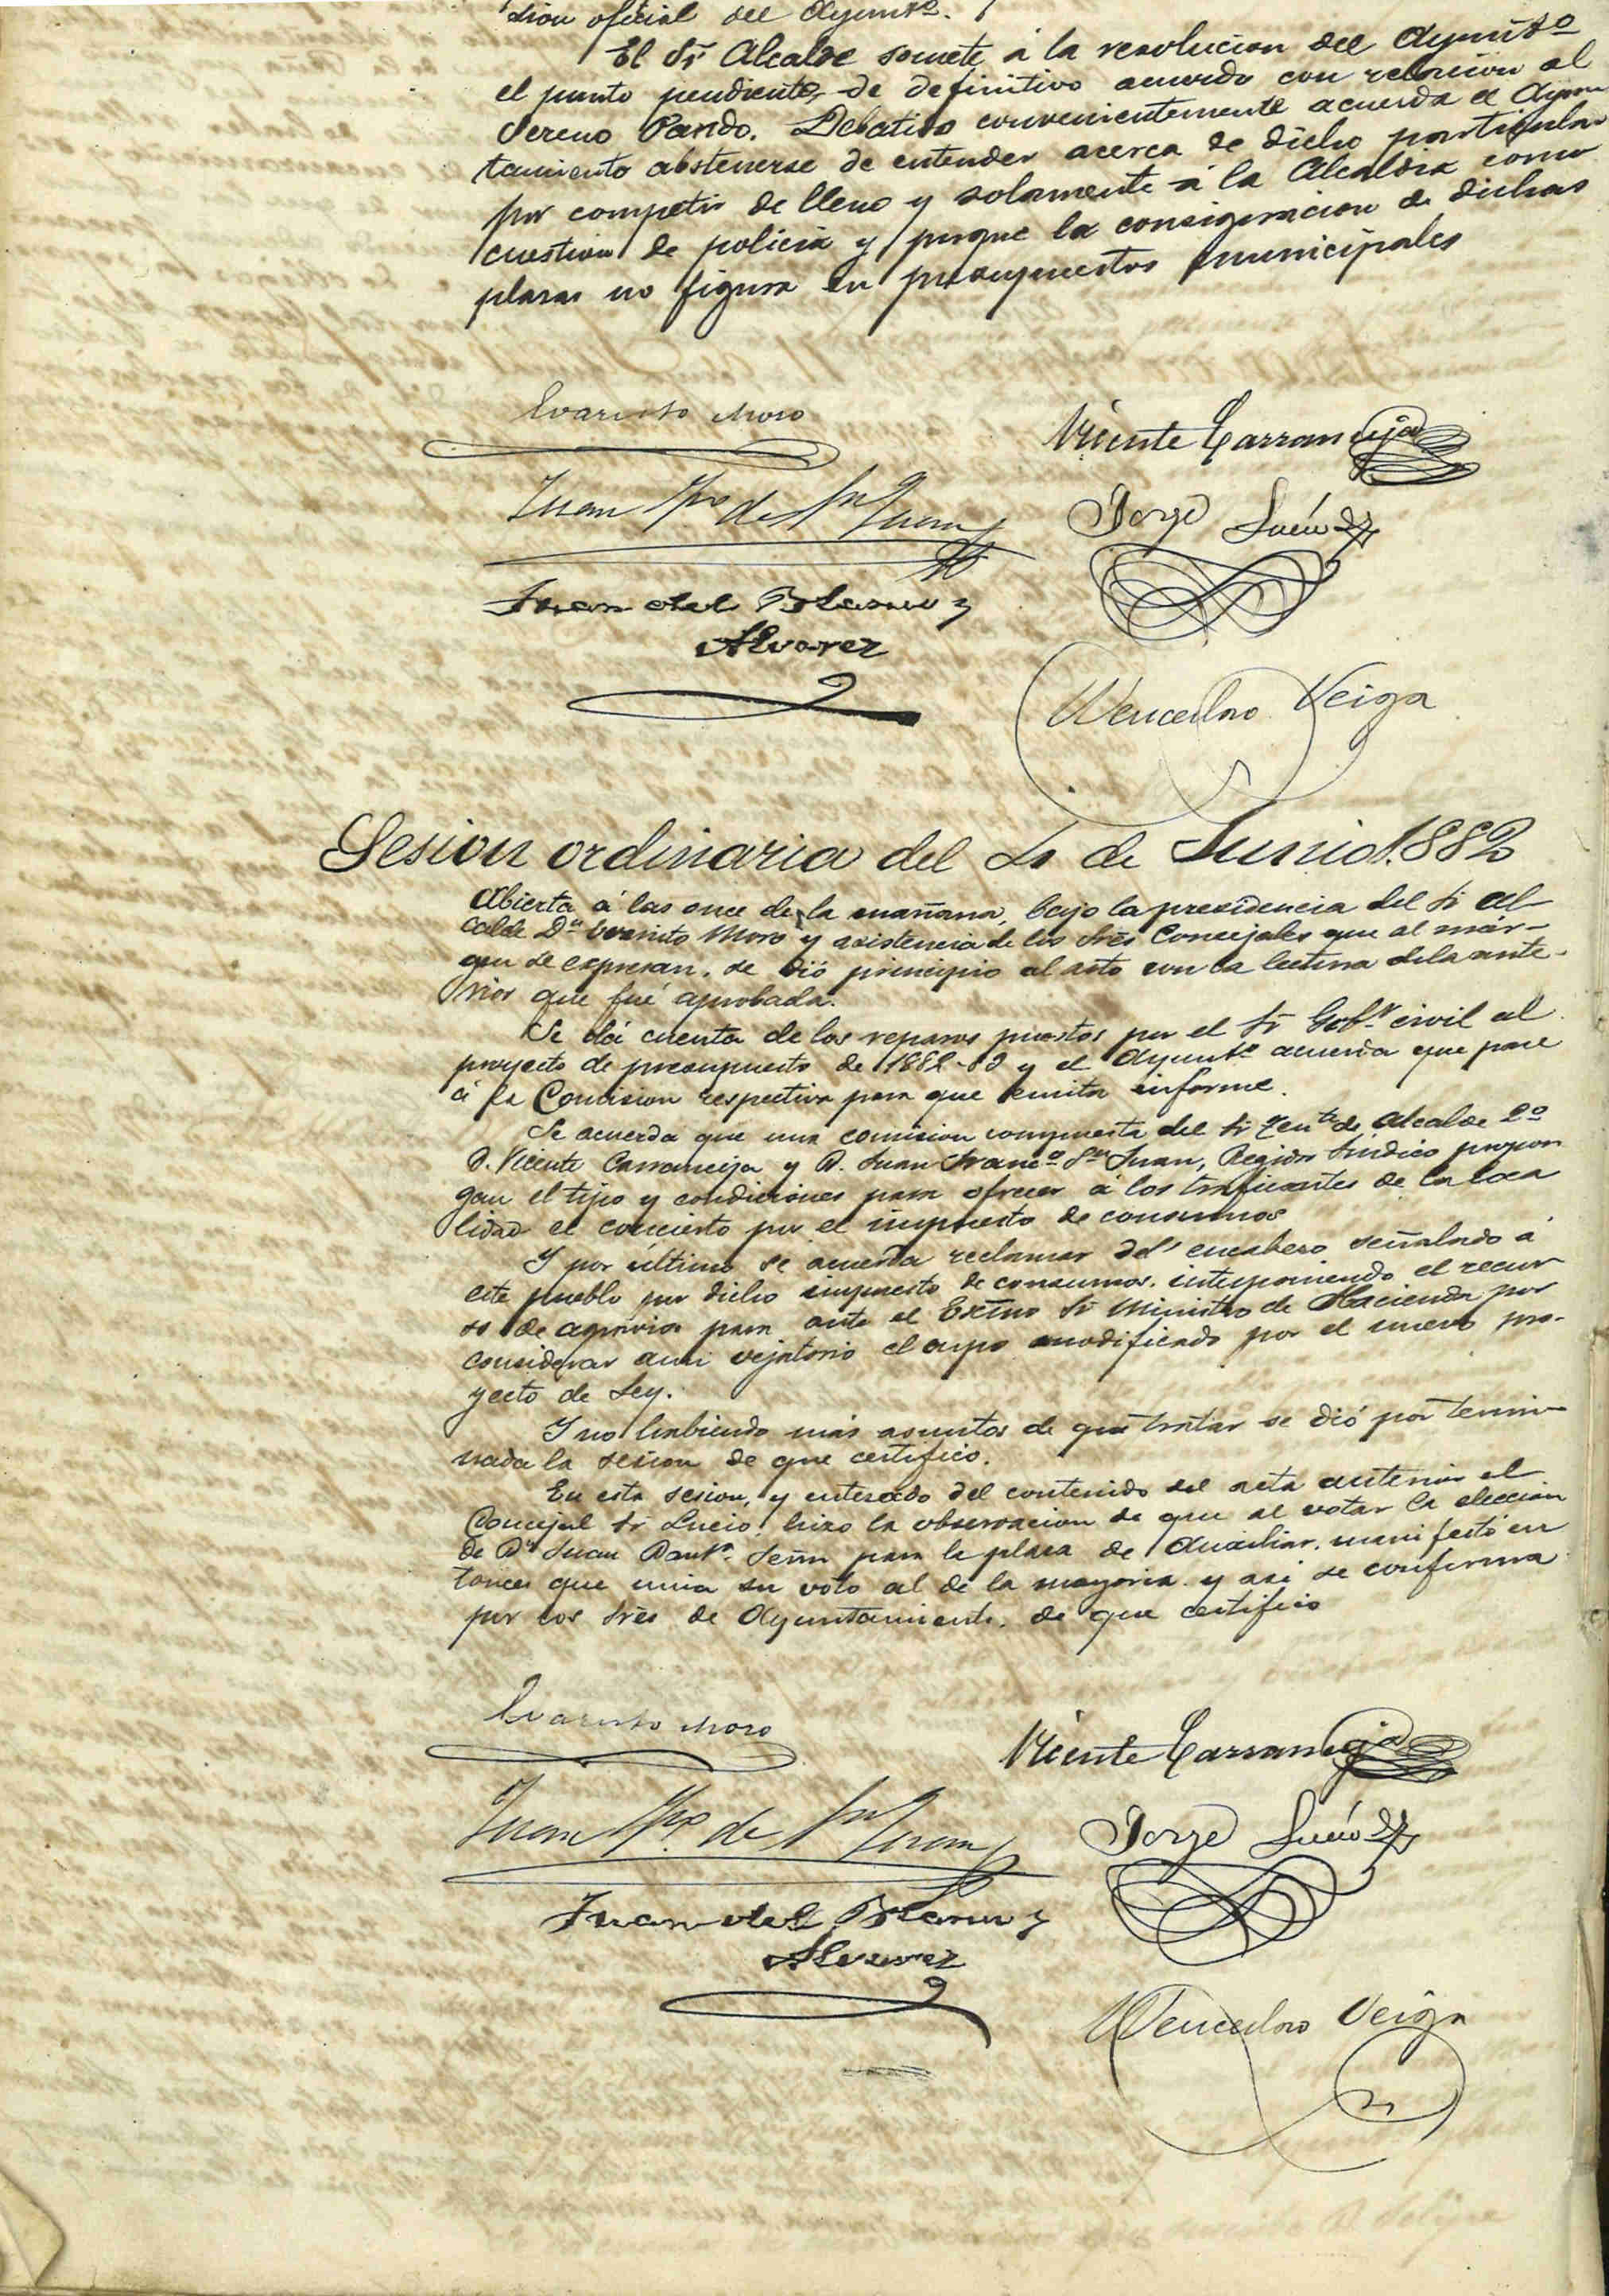 sion oficial del Ayuntº.
El Sr Alcalde somete á la resolucion del Ayuntº
el punto pendiente, de definitivo acuerdo con relacion al
Sereno Pardo. Debatido convenientemente acuerda el Ayun
tamiento abstenerse de entender acerca de dicho particular
por competir de lleno y solamente á la Alcaldia como
cuestion de policia y porque la consignacion de dichas
plazas no figura en presupuestos municipales
Evaristo Moro
Vicente Carranceja
Juan Fco de Sn Juan
Jorge Lucio
Juan del Blanco y
Alvarez
Wenceslao Veiga
Sesion ordinaria del 4 de Junio 1882
Abierta á las once de la mañana, bajo la presidencia del Sr Al-
calde Dn Evaristo Moro y asistencia de los Sres Concejales que al már-
gen se expresan, se dió principio al acto con la lectura de la ante-
rior que fué aprobada.
Se dá cuenta de los reparos puestos por el Sr Gobr civil al
proyecto de presupuesto de 1882-83 y el Ayuntº acuerda que pase
á la Comision respectiva para que emita informe.
Se acuerda que una comision compuesta del Sr Tente de Alcalde 2º
D. Vicente Carranceja y D. Juan Francº Sn Juan, Regidor Síndico propon
gan el tipo y condiciones para ofrecer á los traficantes de la loca
lidad el concierto por el impuesto de consumos
Y por último se acuerda reclamar del encabezo señalado á
este pueblo por dicho impuesto de consumos, interponiendo el recur
so de agravios para ante el Excmo Sr Ministro de Hacienda por
considerar aun vejatorio el cupo modificado por el nuevo pro-
yecto de Ley.
Y no habiendo más asuntos de que tratar se dió por termi-
nada la sesion de que certifico.
En esta sesion, y enterado del contenido del acta anterior el
Concejal Sr Lucio, hizo la observacion de que al votar la eleccion
de Dn Juan para la plaza de Auxiliar, manifestó en
tonces que unia su voto al de la mayoria y asi se conforma
por los Sres de Ayuntamiento, de que certifico
Evaristo Moro
Vicente Carranceja
Juan Fco de Sn Juan
Jorge Lucio
Juan del Blanco y
Alvarez
Wenceslao Veiga